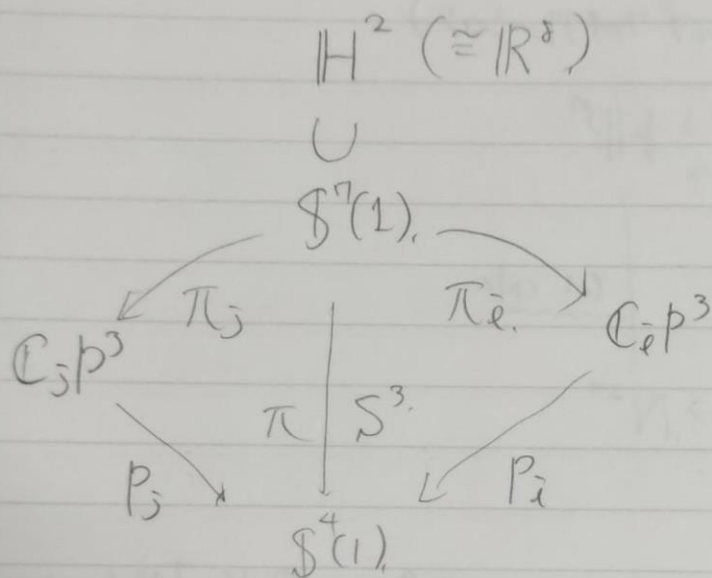 ℍ² (≅ℝ⁸)
∪
𝕊⁷(1).
π_j π_i.
ℂ_jP³ ℂ_iP³
π S³.
P_j P_i
𝕊⁴(1)